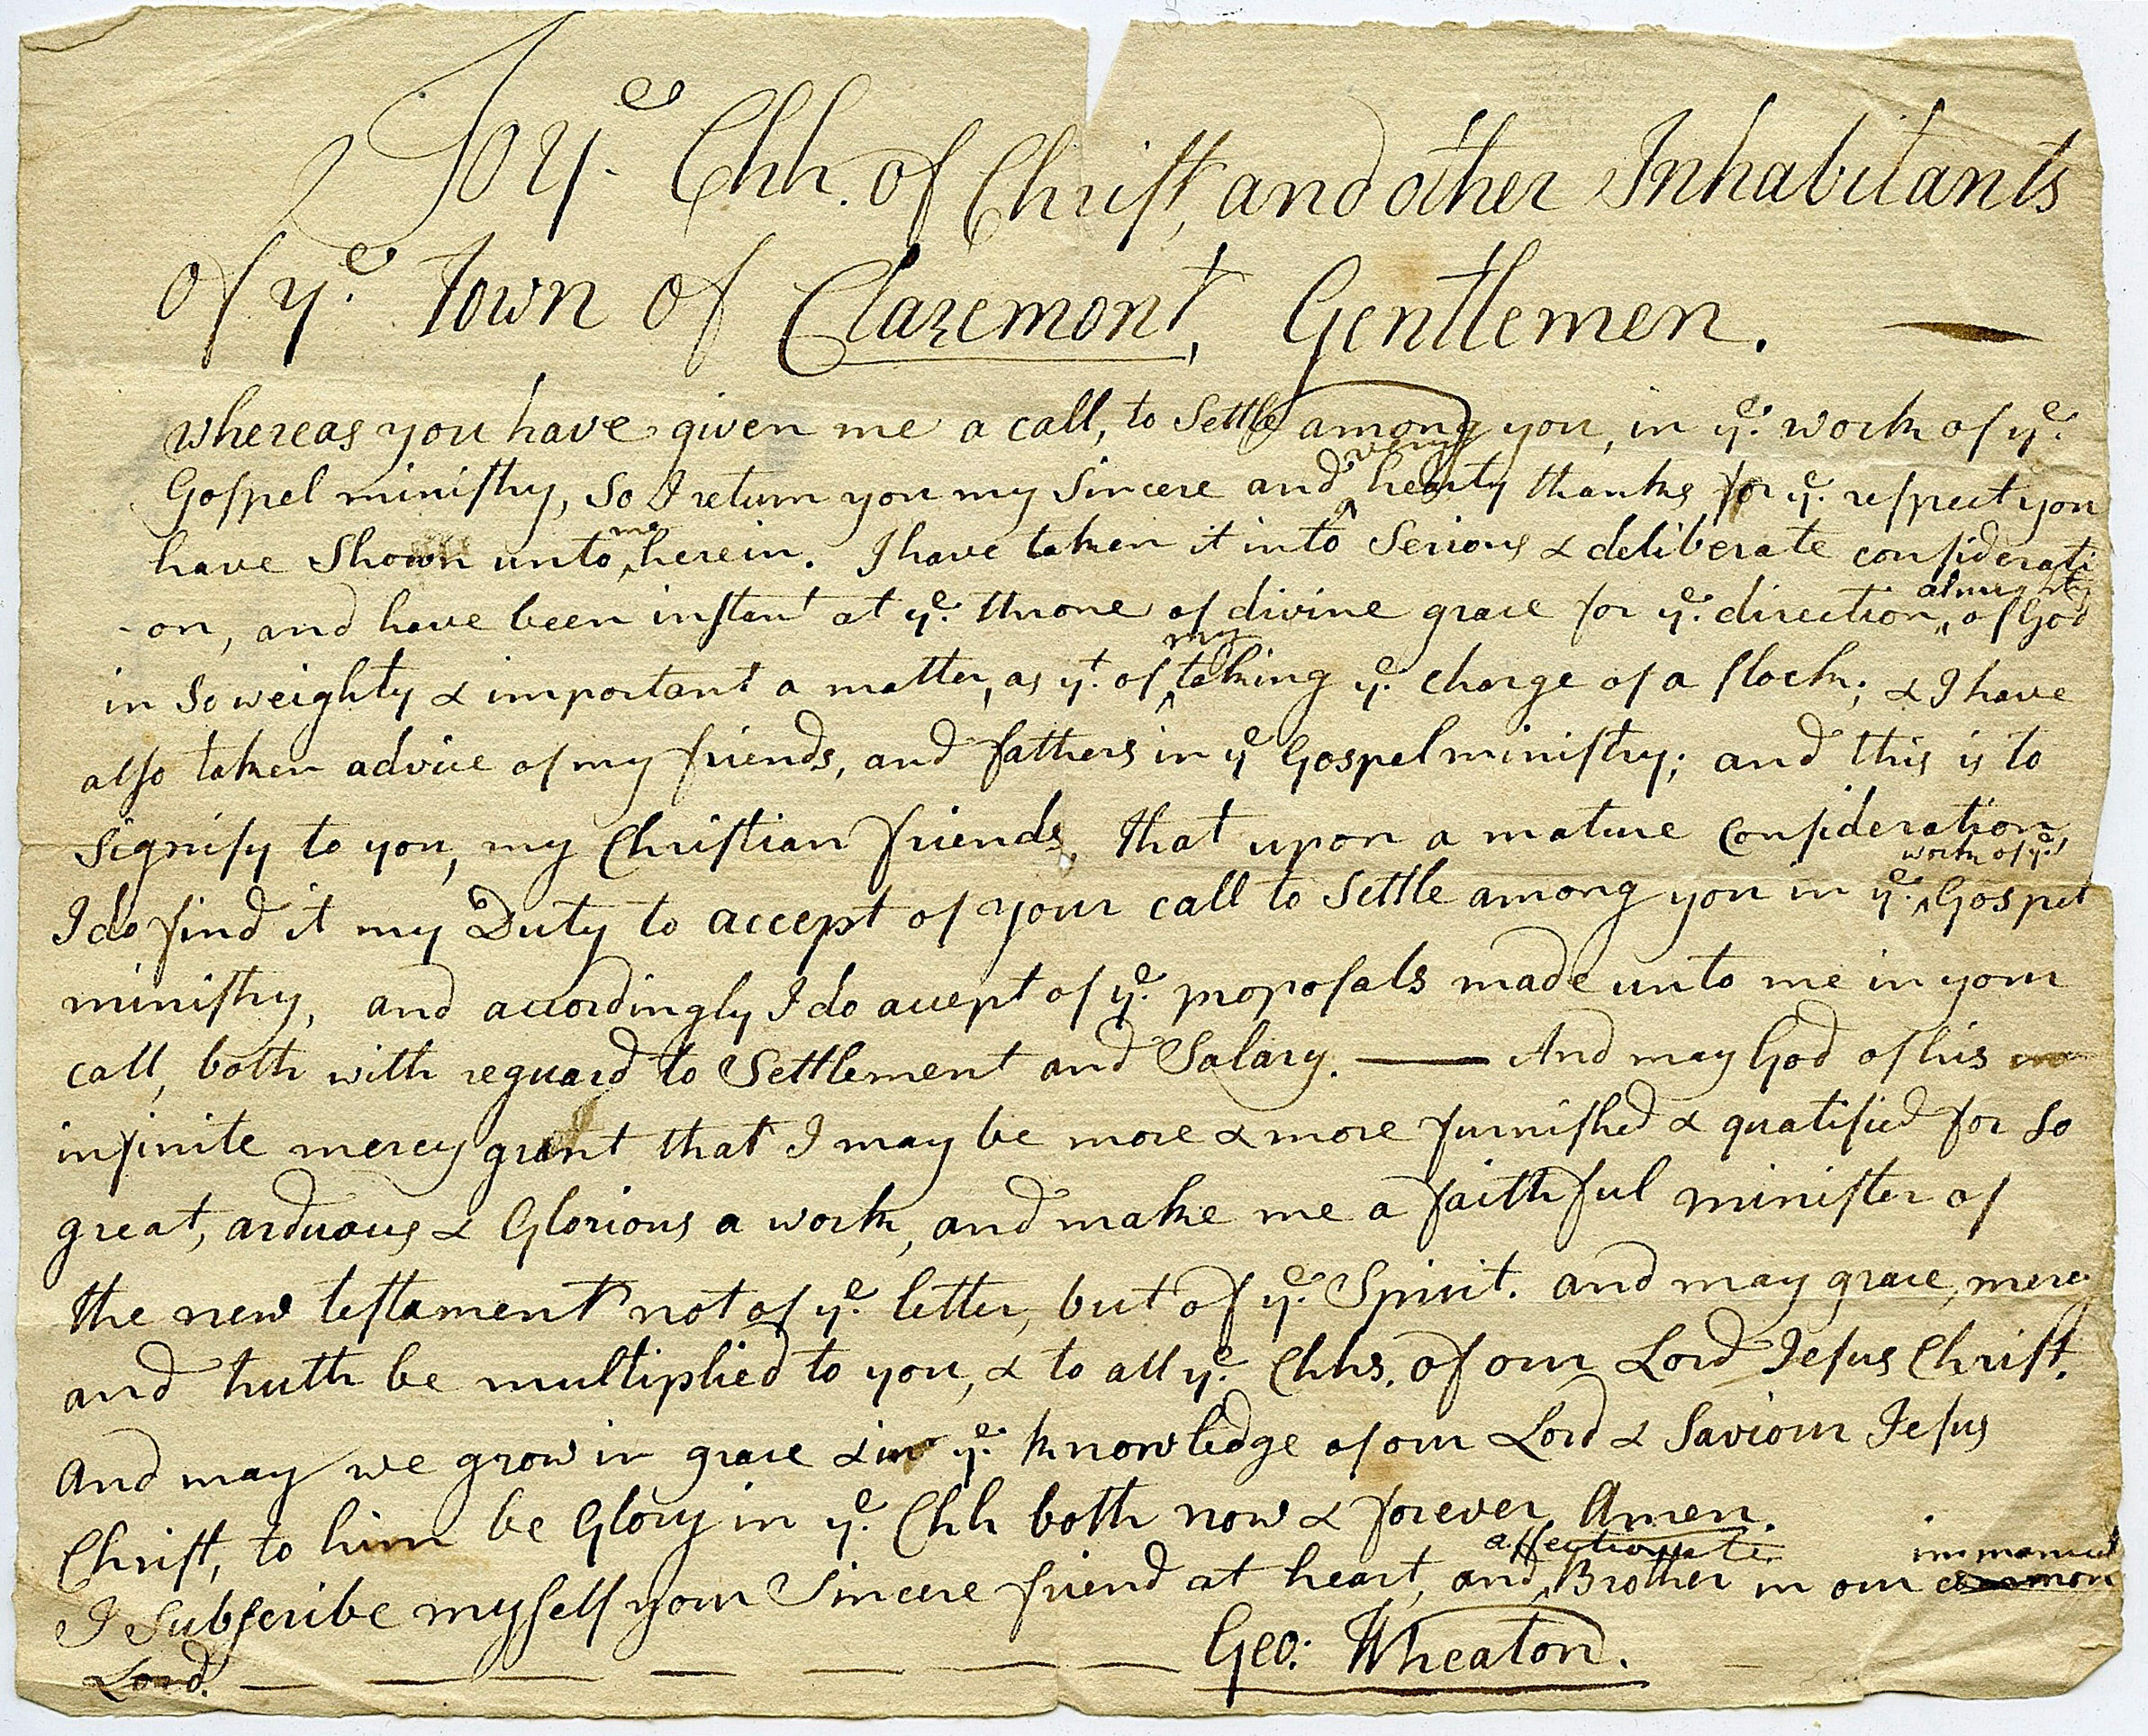 To yᵉ. Chh. of Christ, and other Inhabitants
of yᵉ. Town of Claremont, Gentlemen. —
whereas you have given me a call, to Settle among you, in yᵉ. work of yᵉ.
Gospel ministry, So I return you my Sincere and very hearty thanks for yᵉ. respect you
have Shown unto me herein. I have taken it into Serious & deliberate considerati
-on, and have been instant at yᵉ. throne of divine grace for yᵉ. direction, of almighty God
in So weighty & important a matter, as yᵗ. of my taking yᵉ. charge of a flock; & I have
also taken advice of my friends, and fathers in yᵉ Gospel ministry; and this is to
Signify to you, my Christian friends, that upon a mature Consideration,
I do find it my Duty to accept of your call to Settle among you in yᵉ. work of yᵉ. Gospel
ministry, and accordingly I do accept of yᵉ. proposals made unto me in your
call, both with reguard to Settlement and Salary. — And may God of his
infinite mercy grant that I may be more & more furnished & qualified for So
great, arduous & Glorious a work, and make me a faithful minister of
the new testament not of yᵉ. letter, but of yᵉ. Spirit. and may grace, mercy
and truth be multiplied to you, & to all yᵉ. Chhs. of our Lord Jesus Christ.
And may we grow in grace & in yᵉ. knowledge of our Lord & Saviour Jesus
Christ, to him be Glory in yᵉ. Chh both now & forever Amen.
I Subscribe myself your Sincere friend at heart, and affectionate Brother in our immanuel common
Lord. — — — — — — Geo: Wheaton.